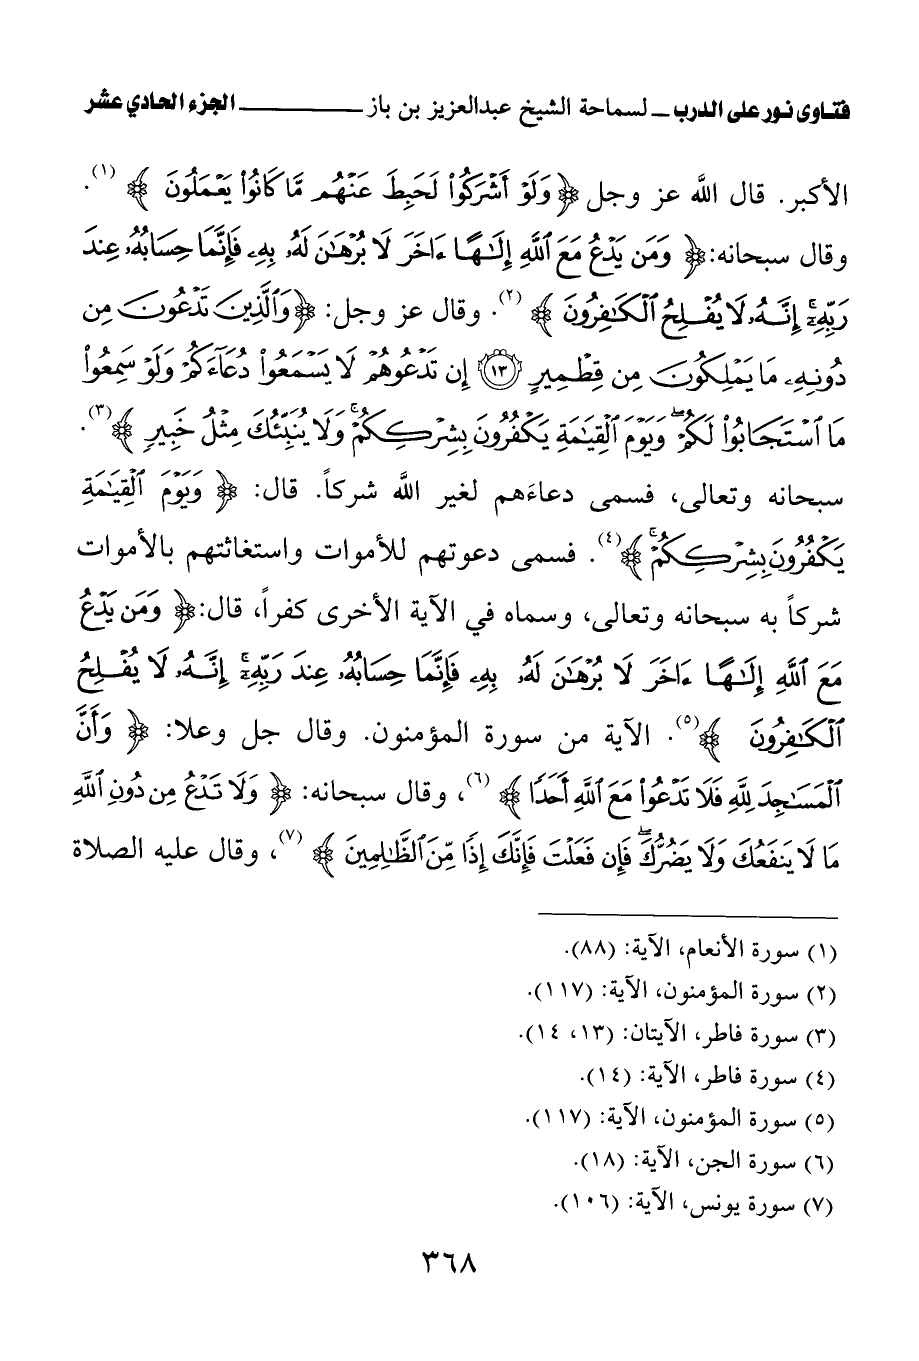 فتاوى نور على الدرب ـ لسماحة الشيخ عبدالعزيز بن باز ــــــــــــ الجزء الحادي عشر
الأكبر. قال الله عز وجل ﴿وَلَوْ أَشْرَكُوا۟ لَحَبِطَ عَنْهُم مَّا كَانُوا۟ يَعْمَلُونَ﴾(١).
وقال سبحانه: ﴿وَمَن يَدْعُ مَعَ ٱللَّهِ إِلَـٰهًا ءَاخَرَ لَا بُرْهَـٰنَ لَهُۥ بِهِۦ فَإِنَّمَا حِسَابُهُۥ عِندَ
رَبِّهِۦٓ إِنَّهُۥ لَا يُفْلِحُ ٱلْكَـٰفِرُونَ﴾(٢). وقال عز وجل: ﴿وَٱلَّذِينَ تَدْعُونَ مِن
دُونِهِۦ مَا يَمْلِكُونَ مِن قِطْمِيرٍ ١٣ إِن تَدْعُوهُمْ لَا يَسْمَعُوا۟ دُعَآءَكُمْ وَلَوْ سَمِعُوا۟
مَا ٱسْتَجَابُوا۟ لَكُمْ ۖ وَيَوْمَ ٱلْقِيَـٰمَةِ يَكْفُرُونَ بِشِرْكِكُمْ ۚ وَلَا يُنَبِّئُكَ مِثْلُ خَبِيرٍ﴾(٣).
سبحانه وتعالى، فسمى دعاءَهم لغير الله شركاً. قال: ﴿وَيَوْمَ ٱلْقِيَـٰمَةِ
يَكْفُرُونَ بِشِرْكِكُمْ ۚ﴾(٤). فسمى دعوتهم للأموات واستغاثتهم بالأموات
شركاً به سبحانه وتعالى، وسماه في الآية الأخرى كفراً، قال: ﴿وَمَن يَدْعُ
مَعَ ٱللَّهِ إِلَـٰهًا ءَاخَرَ لَا بُرْهَـٰنَ لَهُۥ بِهِۦ فَإِنَّمَا حِسَابُهُۥ عِندَ رَبِّهِۦٓ إِنَّهُۥ لَا يُفْلِحُ
ٱلْكَـٰفِرُونَ﴾(٥). الآية من سورة المؤمنون. وقال جل وعلا: ﴿وَأَنَّ
ٱلْمَسَـٰجِدَ لِلَّهِ فَلَا تَدْعُوا۟ مَعَ ٱللَّهِ أَحَدًا﴾(٦)، وقال سبحانه: ﴿وَلَا تَدْعُ مِن دُونِ ٱللَّهِ
مَا لَا يَنفَعُكَ وَلَا يَضُرُّكَ ۖ فَإِن فَعَلْتَ فَإِنَّكَ إِذًا مِّنَ ٱلظَّـٰلِمِينَ﴾(٧)، وقال عليه الصلاة
(١) سورة الأنعام، الآية: (٨٨).
(٢) سورة المؤمنون، الآية: (١١٧).
(٣) سورة فاطر، الآيتان: (١٣، ١٤).
(٤) سورة فاطر، الآية: (١٤).
(٥) سورة المؤمنون، الآية: (١١٧).
(٦) سورة الجن، الآية: (١٨).
(٧) سورة يونس، الآية: (١٠٦).
٣٦٨